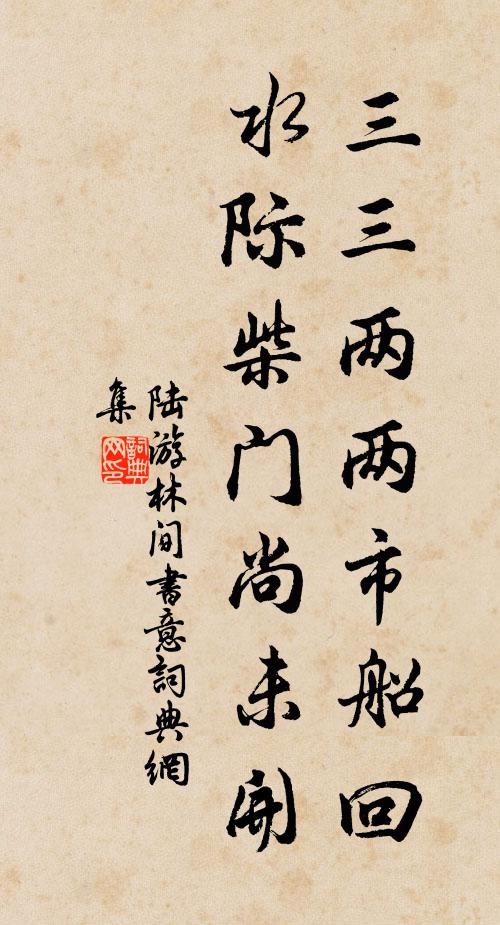 三三两两市船回
水际柴门尚未開
陆游林间書意詞典網
集
詞典
网印